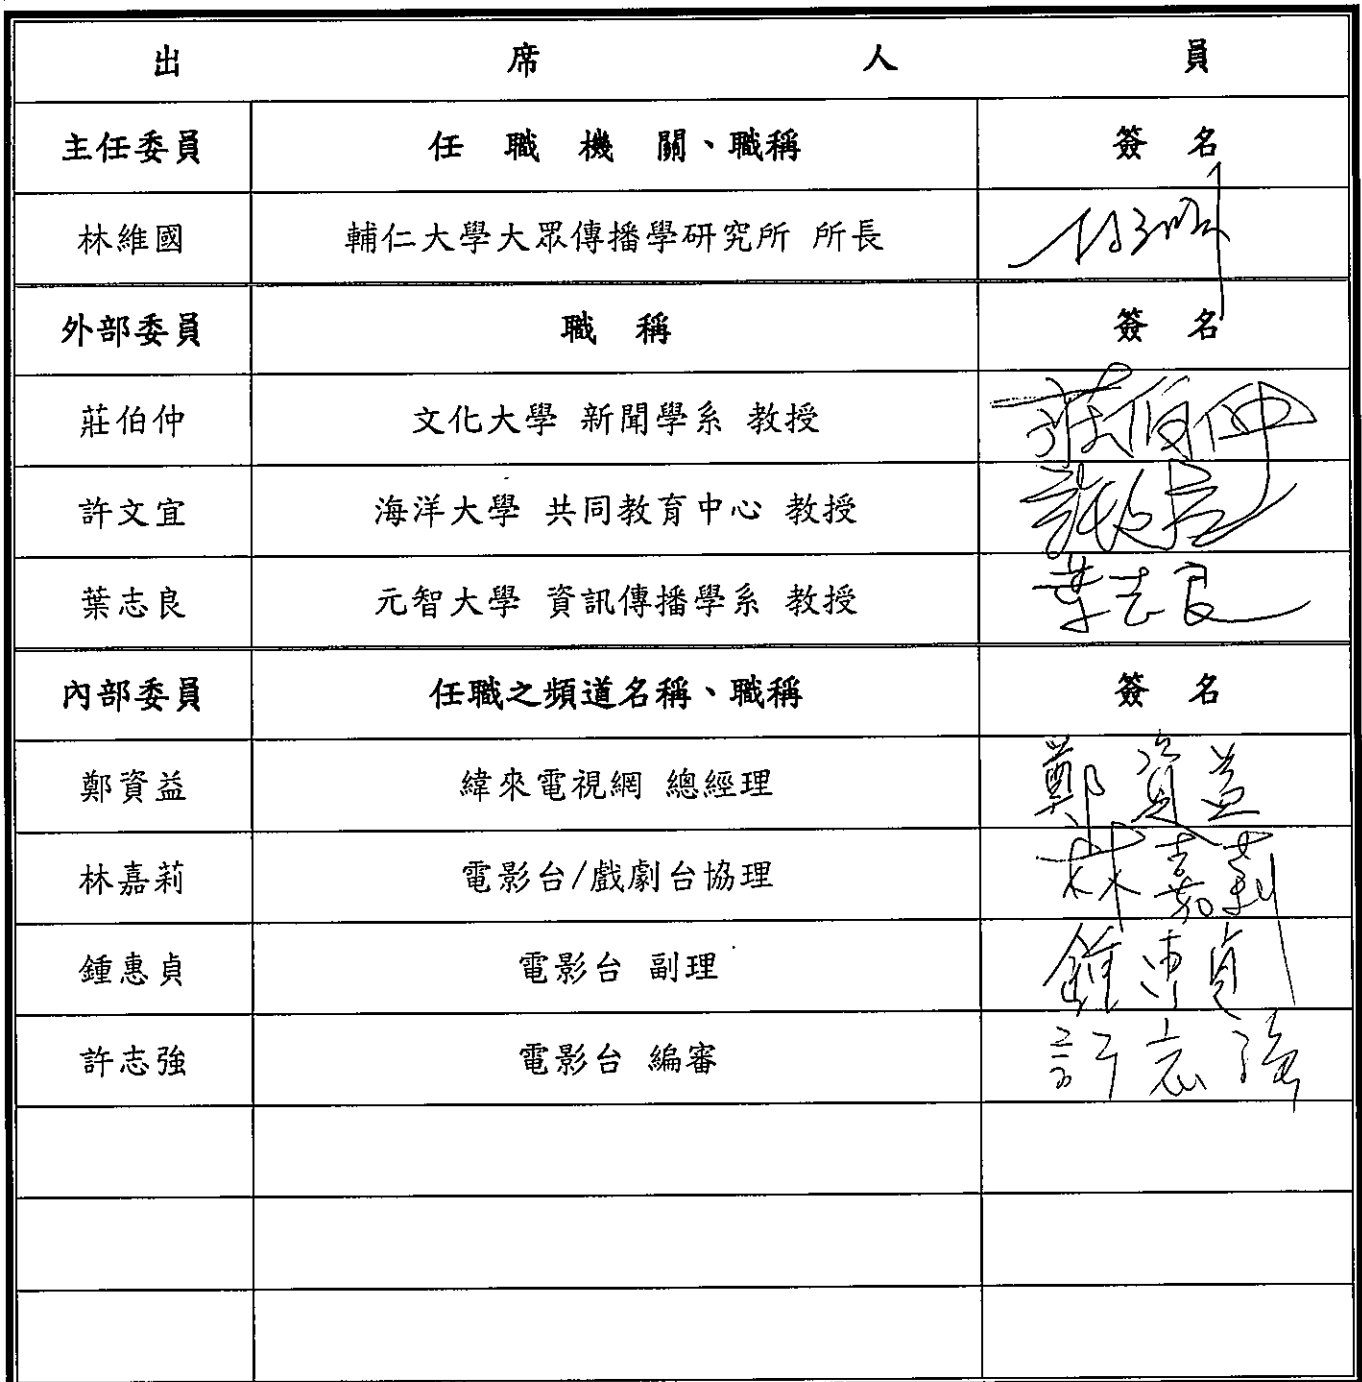 出 席 人 員
主任委員 任 職 機 關、職稱 簽 名
林維國 輔仁大學大眾傳播學研究所 所長
外部委員 職 稱 簽 名
莊伯仲 文化大學 新聞學系 教授 莊伯仲
許文宜 海洋大學 共同教育中心 教授
葉志良 元智大學 資訊傳播學系 教授 葉志良
內部委員 任職之頻道名稱、職稱 簽 名
鄭資益 緯來電視網 總經理 鄭資益
林嘉莉 電影台/戲劇台協理 林嘉莉
鍾惠貞 電影台 副理 鍾惠貞
許志強 電影台 編審 許志強